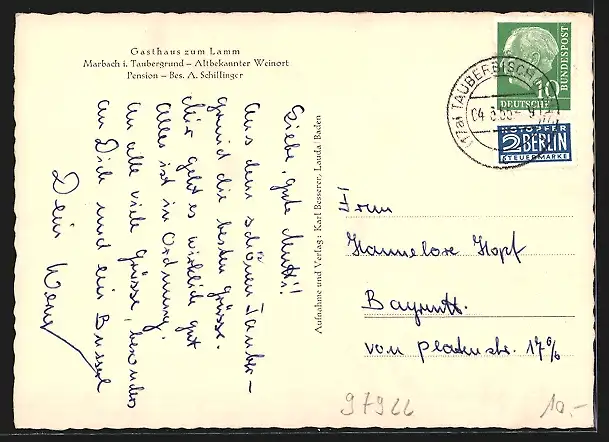 Gasthaus zum Lamm
Marbach i. Taubergrund – Altbekannter Weinort
Pension – Bes. A. Schillinger
Liebe, gute Mutti!
Aus dem schönen Tauber–
grund die besten Grüsse.
Mir geht es wirklich gut
Alles ist in Ordnung.
An alle viele Grüsse, besonders
an Dich und ein Bussel
Dein
Aufnahme und Verlag: Karl Besserer, Lauda/Baden
(17a) TAUBERBISCH
04.
10
DEUTSCHE
BUNDESPOST
NOTOPFER
2 BERLIN
STEUERMARKE
Frau
Hannelore Hopf
Bayreuth.
von Platenstr. 17
97966
10.-